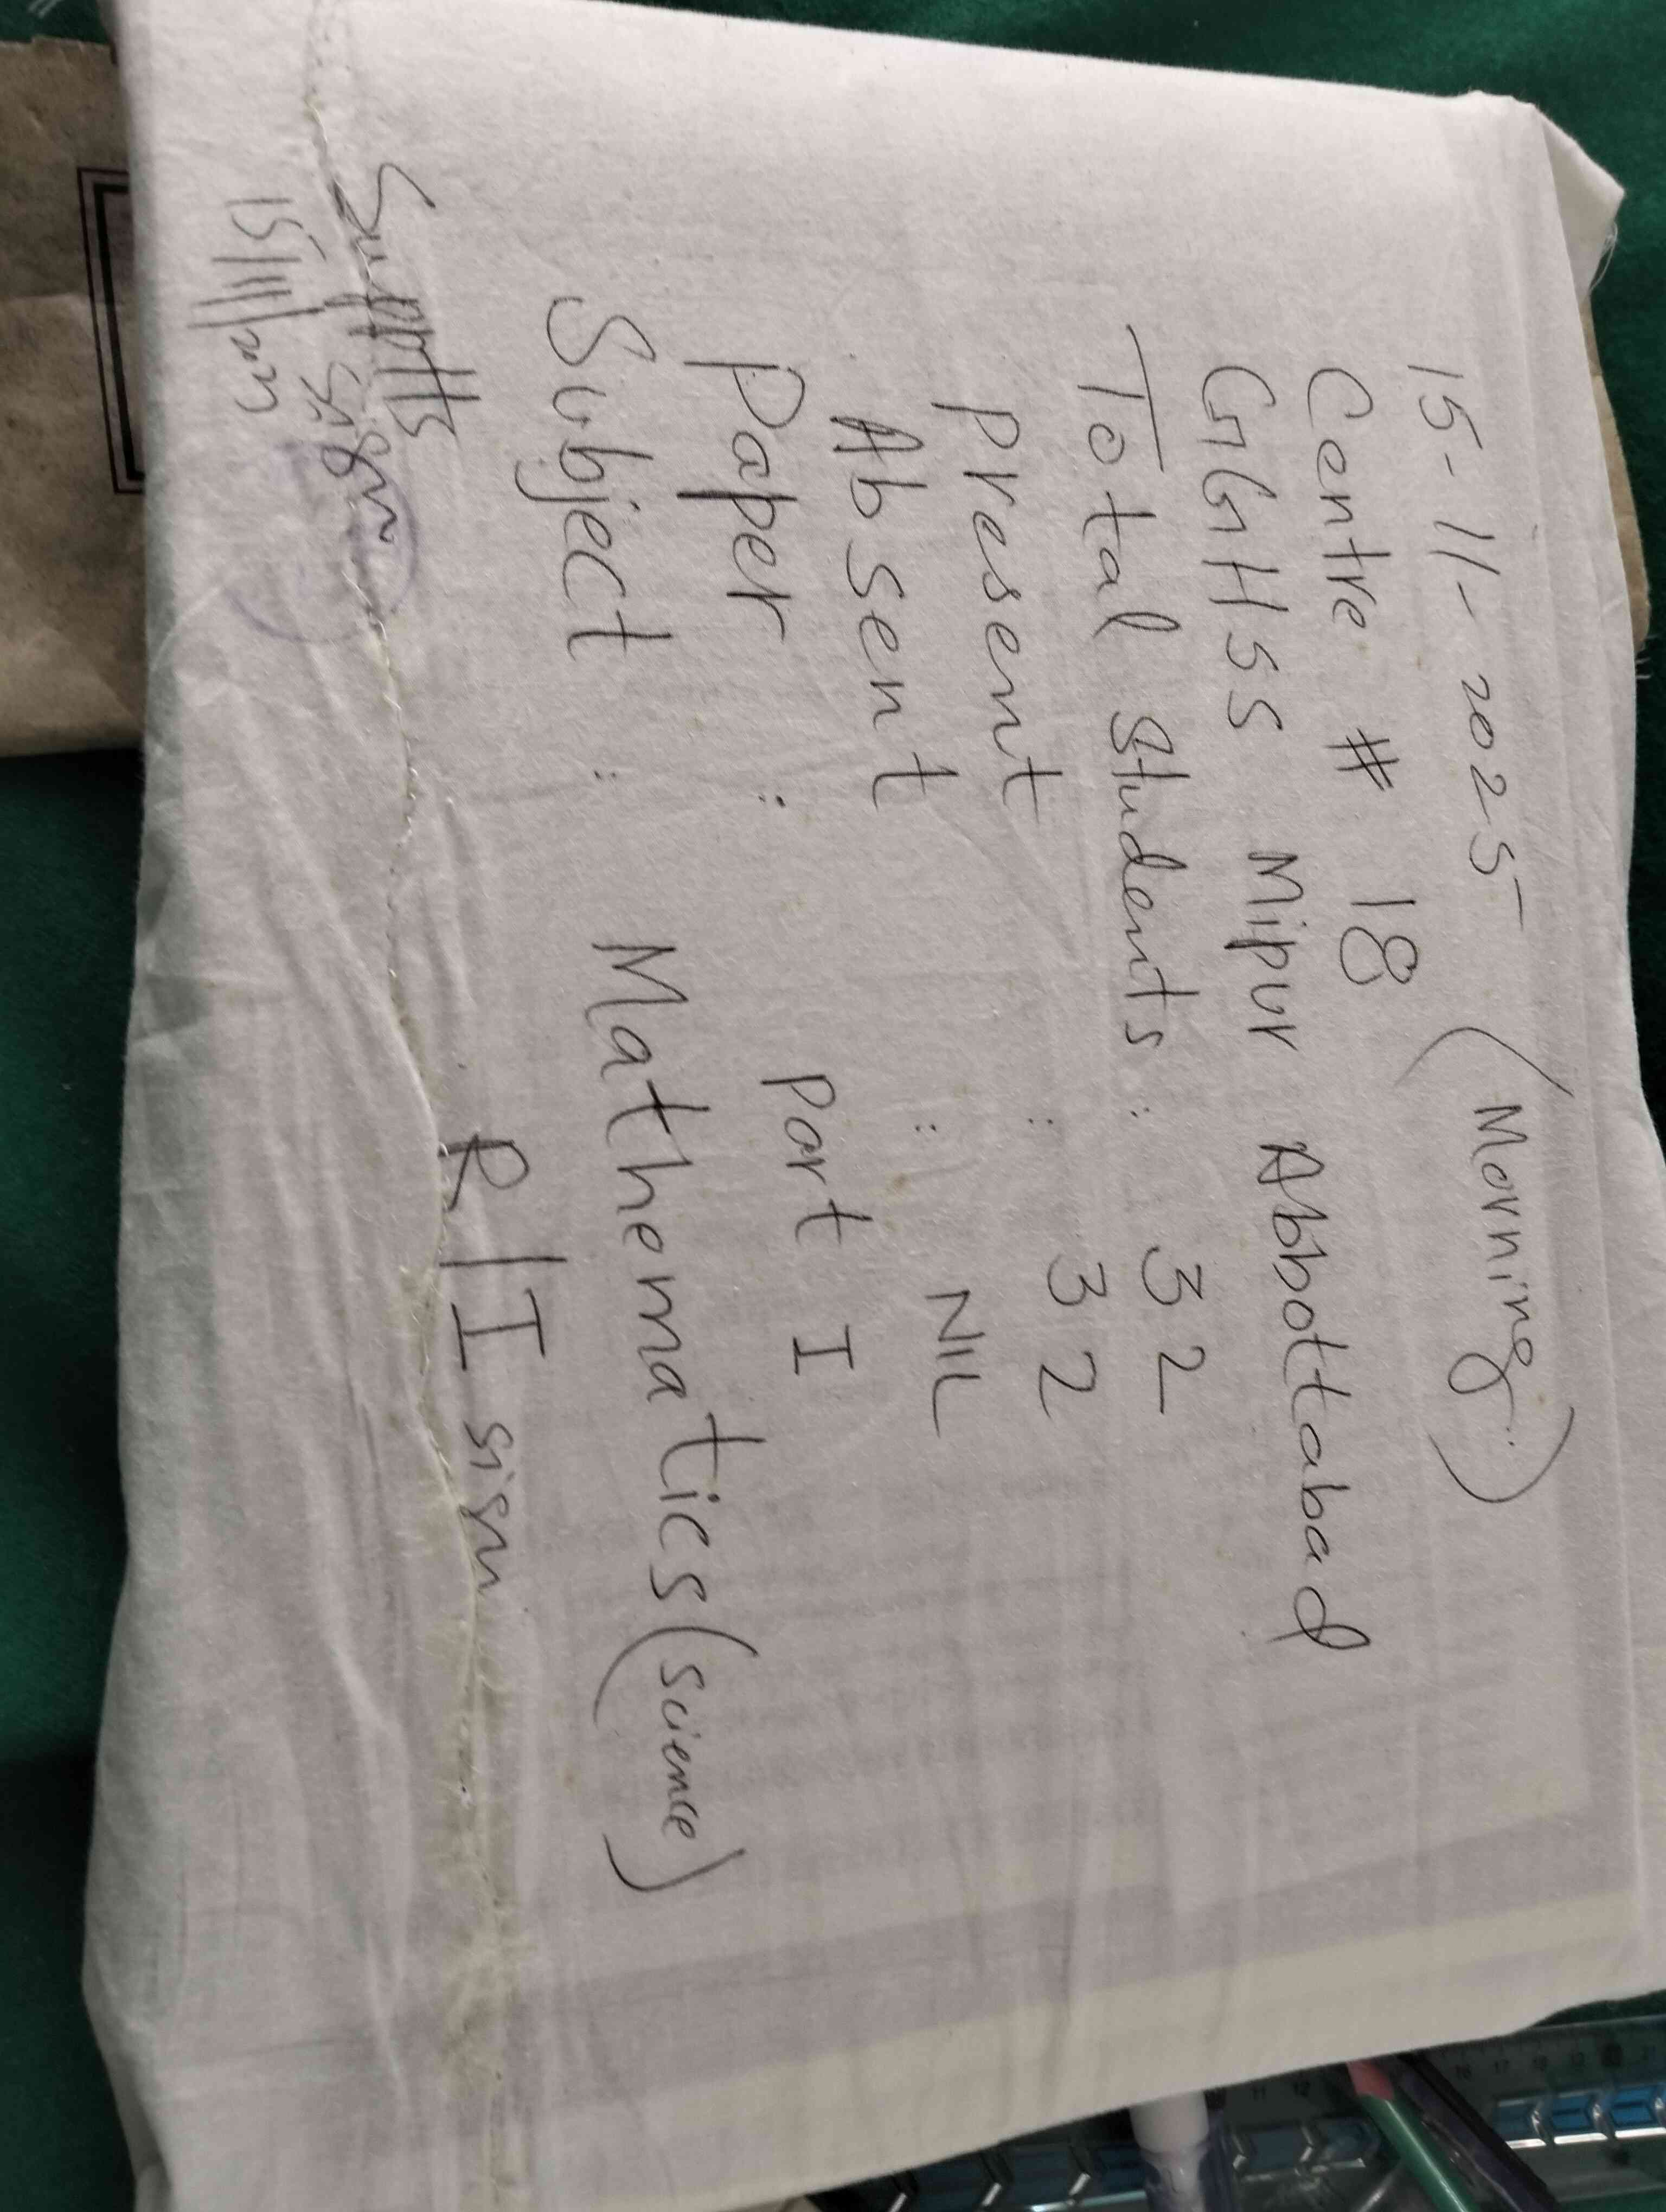 15-11-2025 (Morning)
Centre # 18
GGHSS Mipur Abbottabad
Total Students : 32
present : 32
Absent : NIL
Paper : part I
Subject : Mathematics (science)
R/I sign
Sign